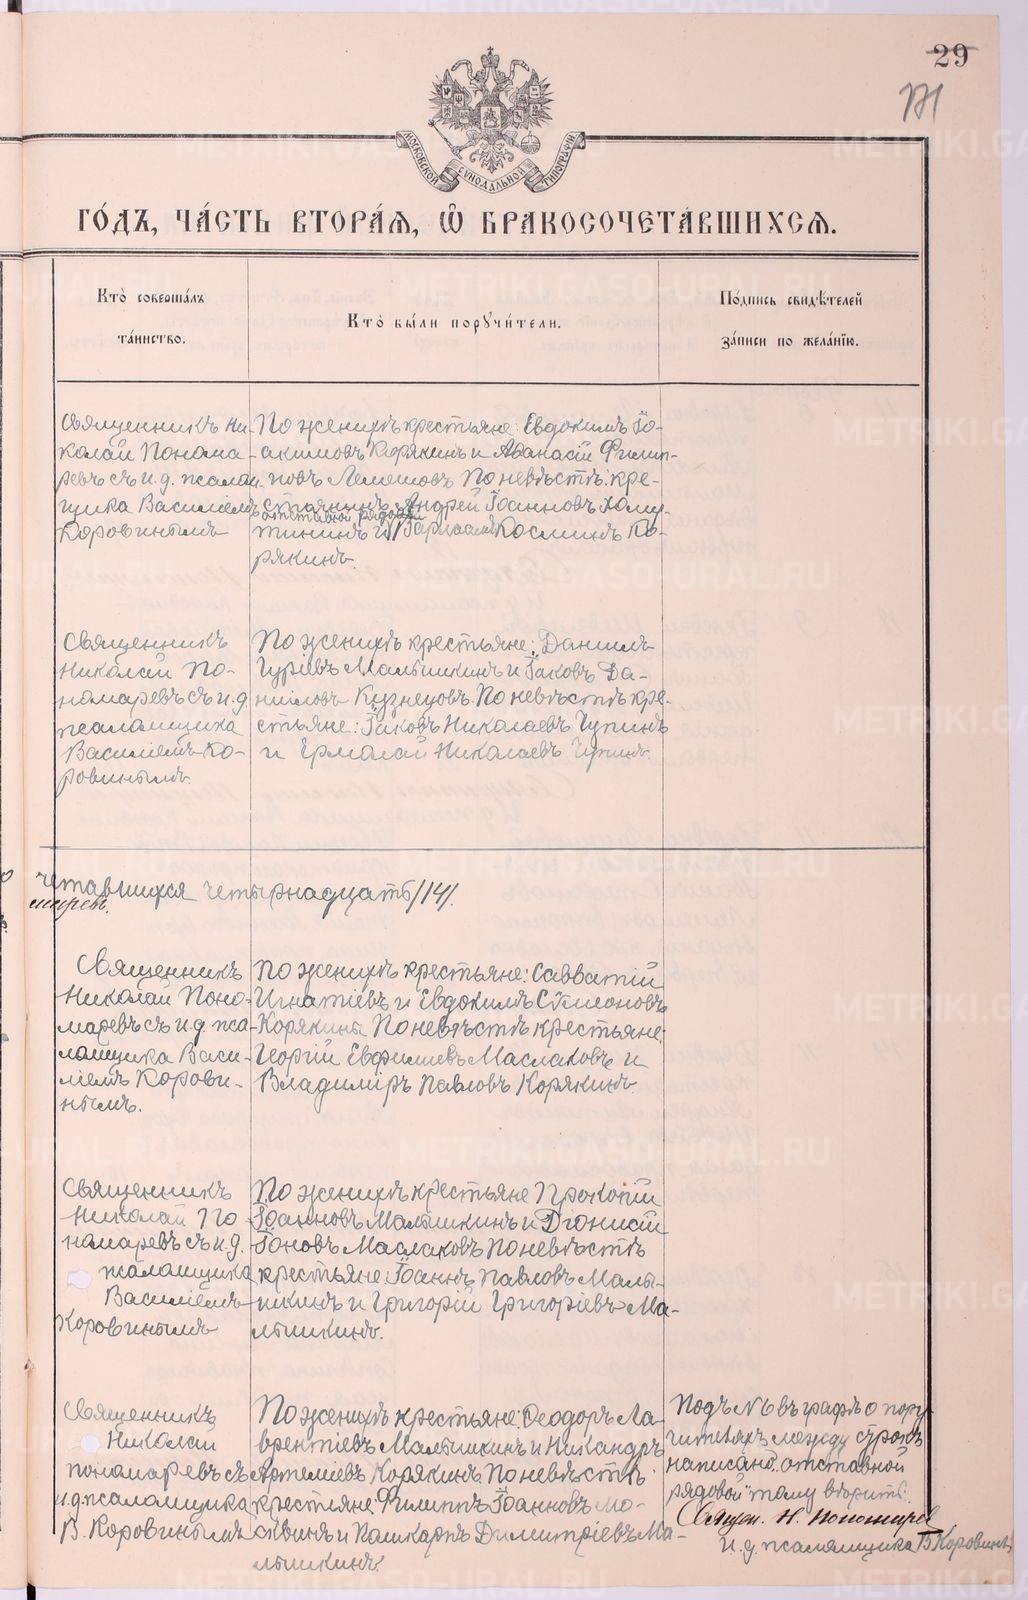 29
171
МОСКОВСКОЙ СѴНОДАЛЬНОЙ ТИПОГРАФІИ
ГО́ДЪ, ЧА́СТЬ ВТОРА́Ѧ, Ѽ БРАКОСОЧЕТА́ВШИХСѦ.
Кто̀ соверша́лъ
та́инство.
Кто̀ бы́ли порꙋчи́тели.
По́дпись свидѣ́телей
за́писи по жела́нїю.
Священникъ Ни-
колай Понома-
ревъ съ и.д. псалом-
щика Василіемъ
Коровинымъ
По женихѣ крестьяне: Евдокимъ Іо-
акимовъ Корякинъ и Аѳанасій Филип-
повъ Лемешовъ. По невѣстѣ: кре-
стьянинъ Андрей Іоанновъ Хому-
отставной рядовой
тининъ и Варлаамъ Косминъ Ко-
рякинъ.
Священникъ
Николай По-
номаревъ съ и.д.
псаломщика
Василіемъ Ко-
ровинымъ.
По женихѣ крестьяне: Даніилъ
Гуріевъ Малышкинъ и Іаковъ Да-
ніиловъ Кузнецовъ. По невѣстѣ кре-
стьяне: Іаковъ Николаевъ Чупинъ
и Ермолай Николаевъ Чупинъ.
четавшихся четырнадцать /14/.
Священникъ
Николай Поно-
маревъ съ и.д. пса-
ломщика Васи-
ліемъ Корови-
нымъ.
По женихѣ крестьяне: Савватій
Игнатіевъ и Евдокимъ Сѵмеоновъ
Корякины. По невѣстѣ крестьяне:
Георгій Евфиміевъ Маслаковъ и
Владиміръ Павловъ Корякинъ.
Священникъ
Николай По
номаревъ съ и.д.
псаломщика
Василіемъ
Коровинымъ
По женихѣ крестьяне Прокопій
Іоанновъ Малышкинъ и Діонисій
Іоновъ Маслаковъ. По невѣстѣ
крестьяне: Іоаннъ Павловъ Малы-
шкинъ и Григорій Григоріевъ Ма-
лышкинъ.
Священникъ
Николай
Пономаревъ съ
и.д. псаломщика
В. Коровинымъ
По женихѣ крестьяне: Ѳеодоръ Ла-
врентіевъ Малышкинъ и Никандръ
Артеміевъ Корякинъ. По невѣстѣ
крестьяне: Филиппъ Іоанновъ Мо-
сквинъ и Димитріевъ Ма-
лышкинъ.
Подъ № 6 въ графѣ о пору-
чителяхъ между строкъ
написано: „отставной
рядовой" тому вѣрить.
Священ. Н. Пономарев
И.д. псаломщика В. Коровинъ